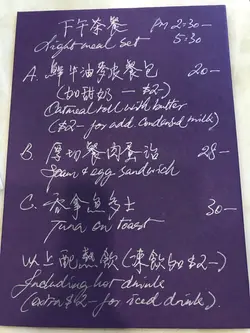 下午茶餐 P.M. 2:30-
Light meal set 5:30
A. 鮮牛油麥皮餐包 20-
(加甜奶 - $2-)
Oatmeal roll with butter
($2- for add. Condensed milk)
B. 厚切餐肉蛋治 28-
Spam & egg sandwich
C. 吞拿魚多士 30-
Tuna on toast
以上配熱飲 (凍飲加$2-)
Including hot drink
(extra $2- for iced drink).